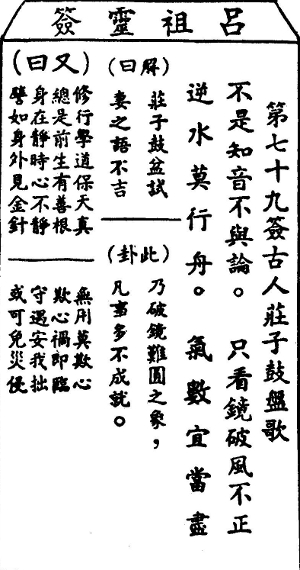 呂祖靈簽
第七十九簽古人莊子鼓盤歌
不是知音不與論。 只看鏡破風不正
逆水莫行舟。 氣數宜當盡
(解曰)
莊子鼓盆試
妻之語不吉
(此卦)
乃破鏡難圓之象,
凡事多不成就。
(又曰)
修行學道保天真
總是前生有善根
身在靜時心不靜
譬如身外見金針
無刑莫欺心
欺心禍即臨
守過安我拙
或可免災侵